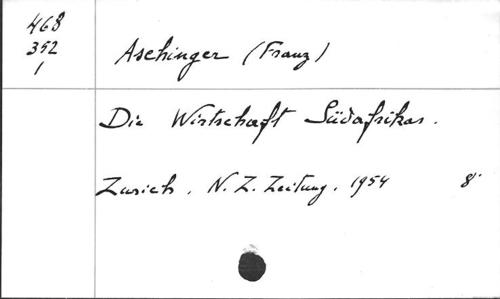 468
352
1
Aschinger (Franz)
Die Wirtschaft Südafrikas.
Zurich. N. Z. Zeitung. 1954 8°